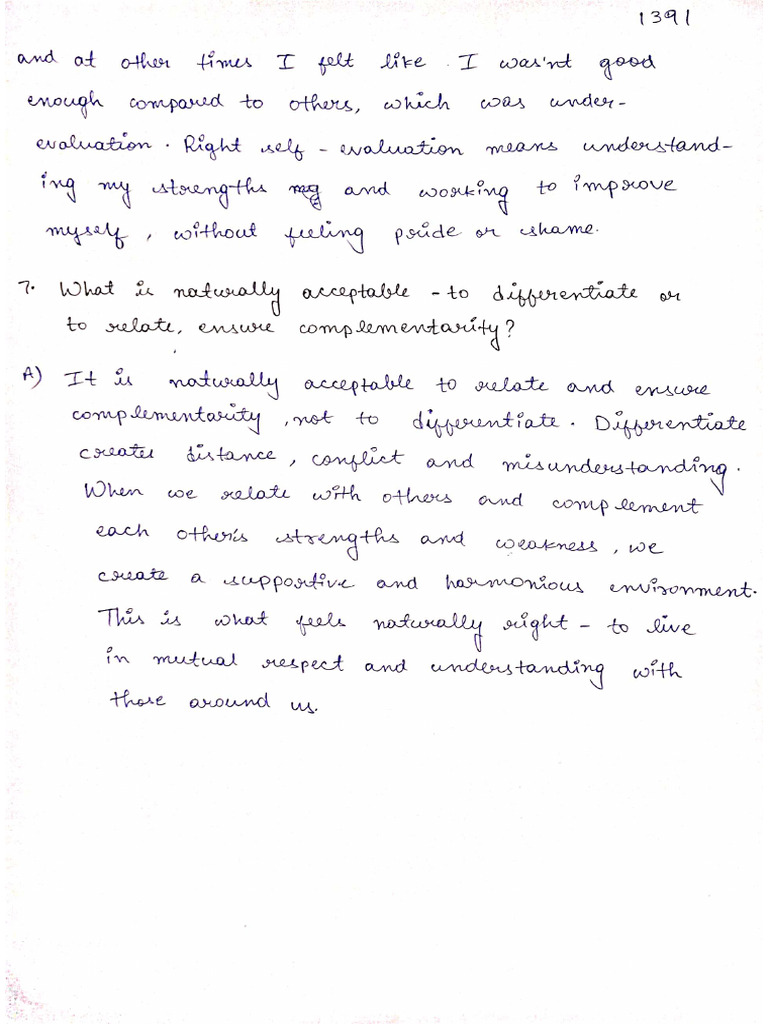 1391
and at other times I felt like I was'nt good
enough compared to others, which was under-
evaluation. Right self-evaluation means understand-
ing my strengths and working to improve
myself, without feeling pride or shame.
7. What is naturally acceptable - to differentiate or
to relate, ensure complementarity?
A) It is naturally acceptable to relate and ensure
complementarity, not to differentiate. Differentiate
creates distance, conflict and misunderstanding.
When we relate with others and complement
each other's strengths and weakness, we
create a supportive and harmonious environment.
This is what feels naturally right - to live
in mutual respect and understanding with
those around us.